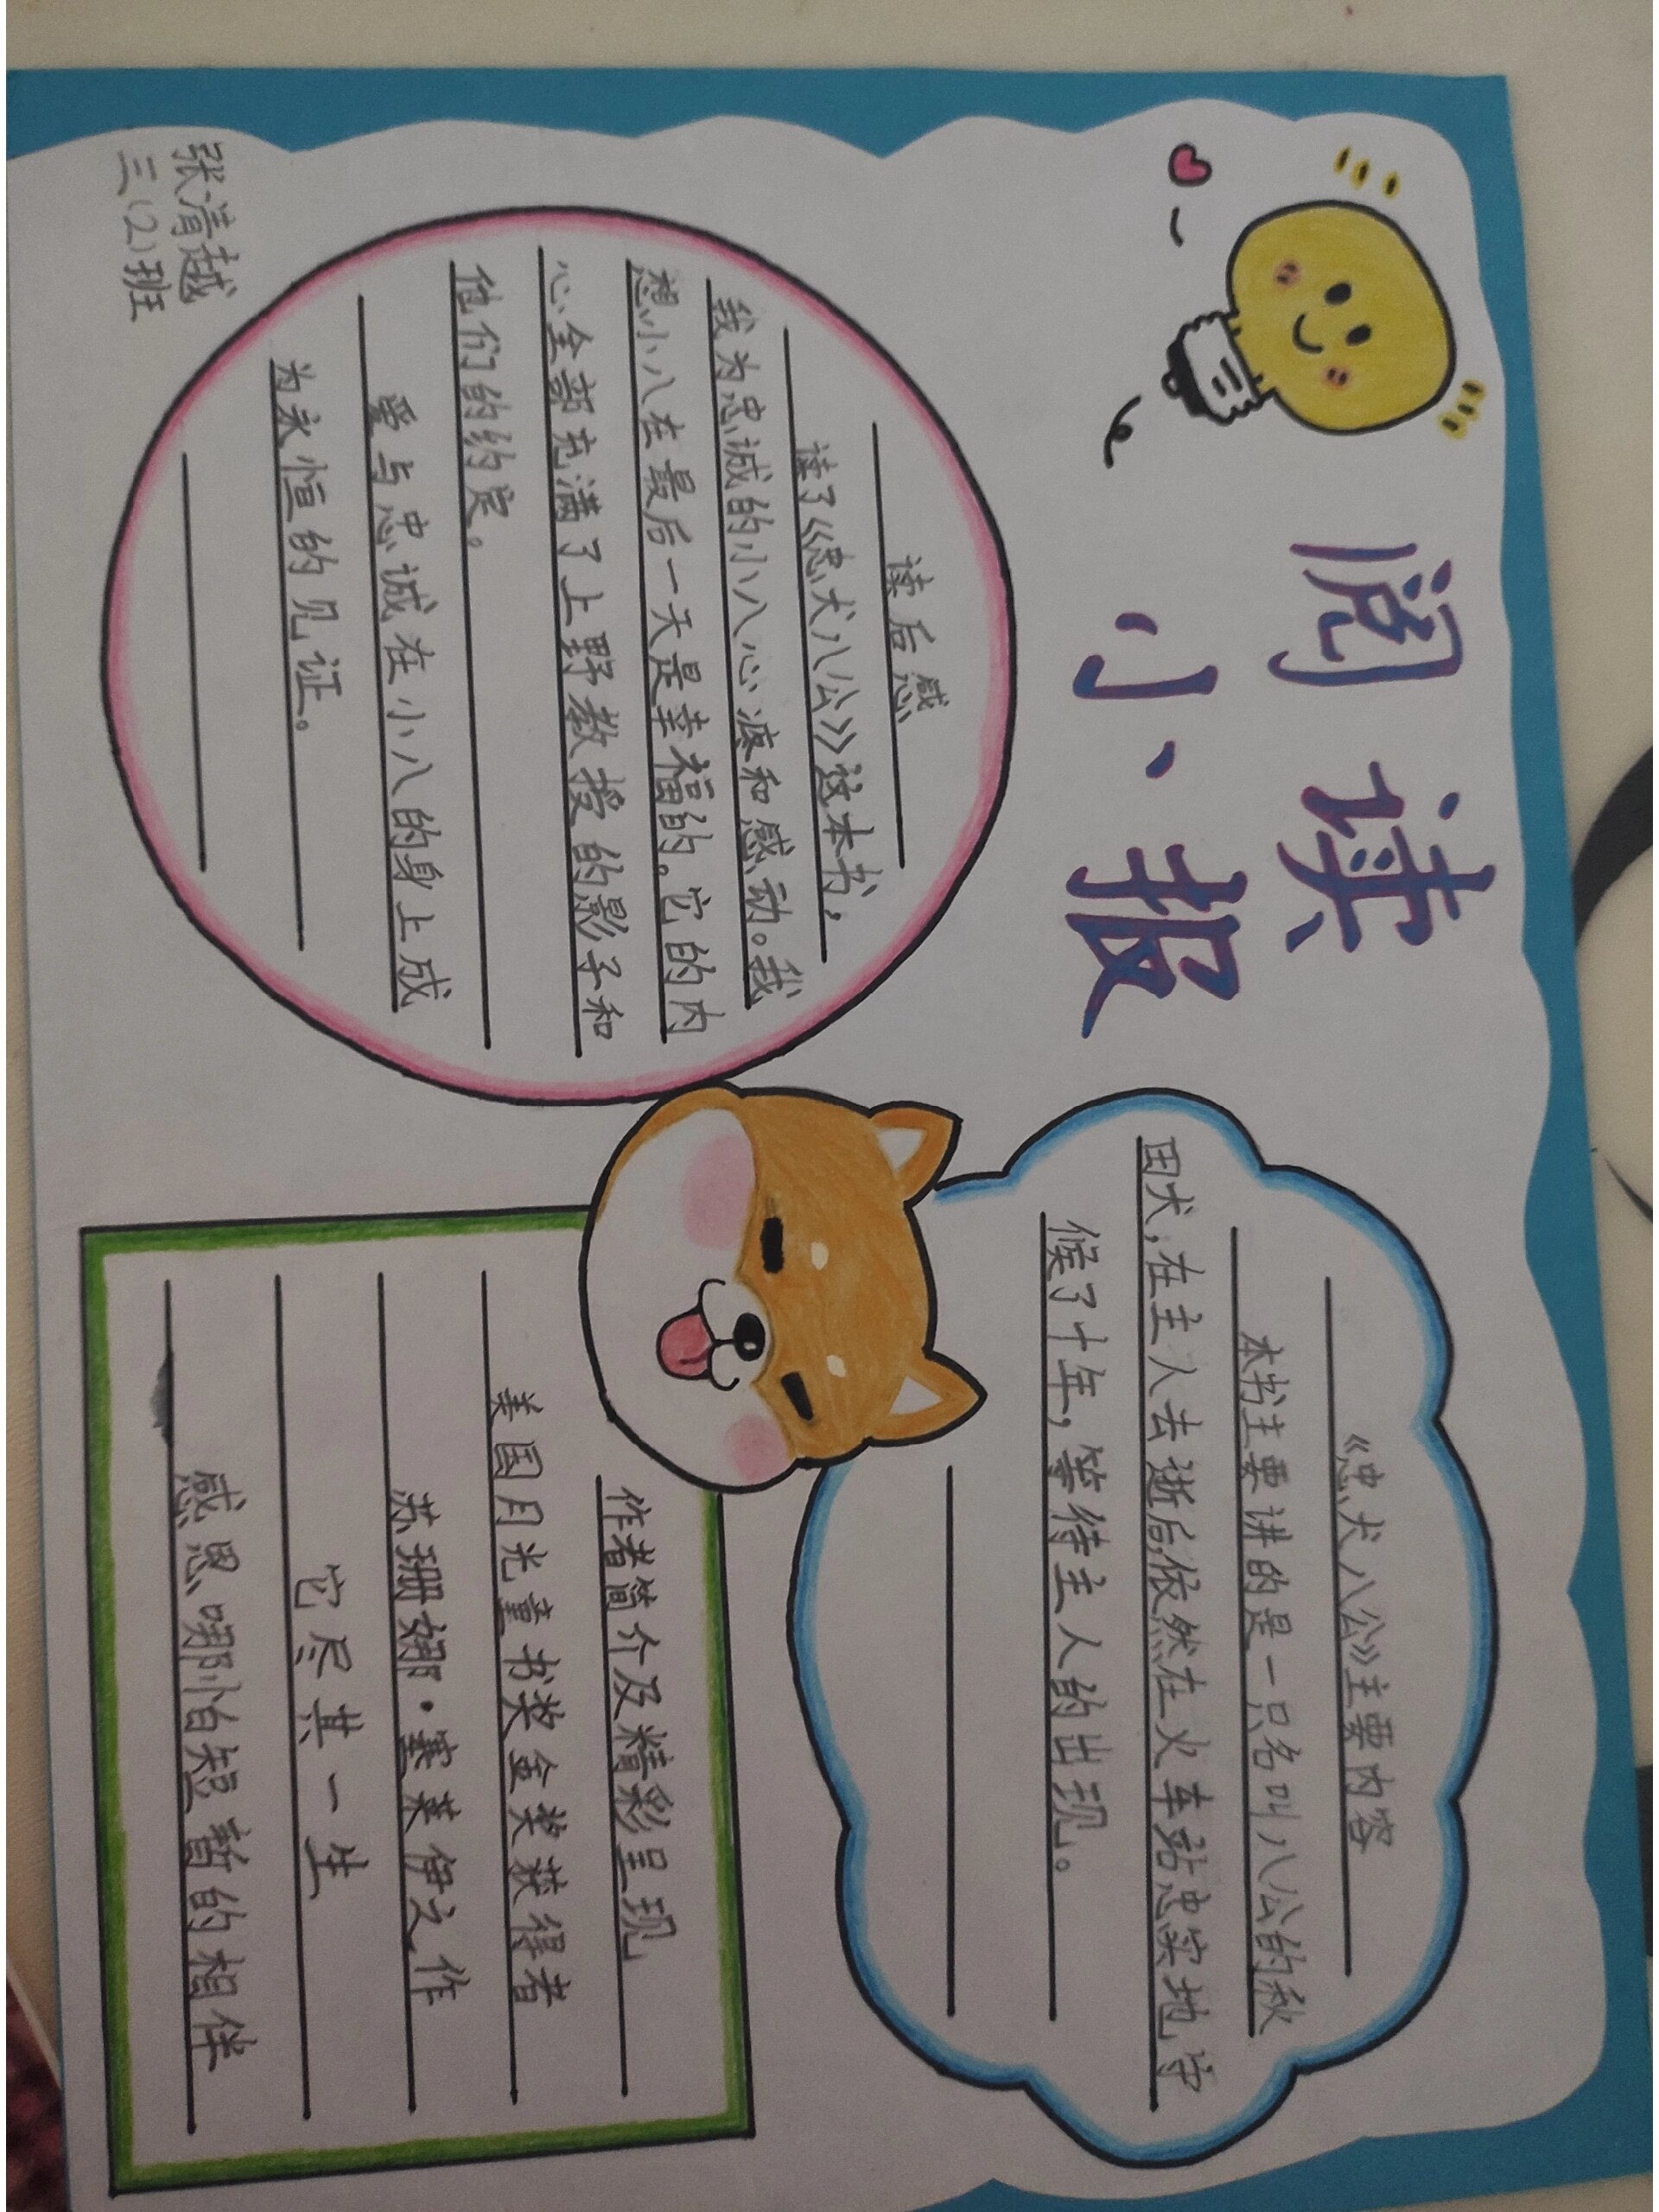 阅读
小报
《忠犬八公》主要内容
本书主要讲的是一只名叫八公的秋
田犬,在主人去逝后,依然在火车站忠实地守
候了十年,等待主人的出现。
读后感
读了《忠犬八公》这本书,
我为忠诚的小八心疼和感动。我
想小八在最后一天是幸福的。它的内
心全部充满了上野教授的影子和
他们的约定。
爱与忠诚在小八的身上成
为永恒的见证。
作者简介及精彩呈现
美国月光童书奖金奖获得者
苏珊娜·塞莱伊之作
它尽其一生
感恩哪怕短暂的相伴
张清越
三(2)班